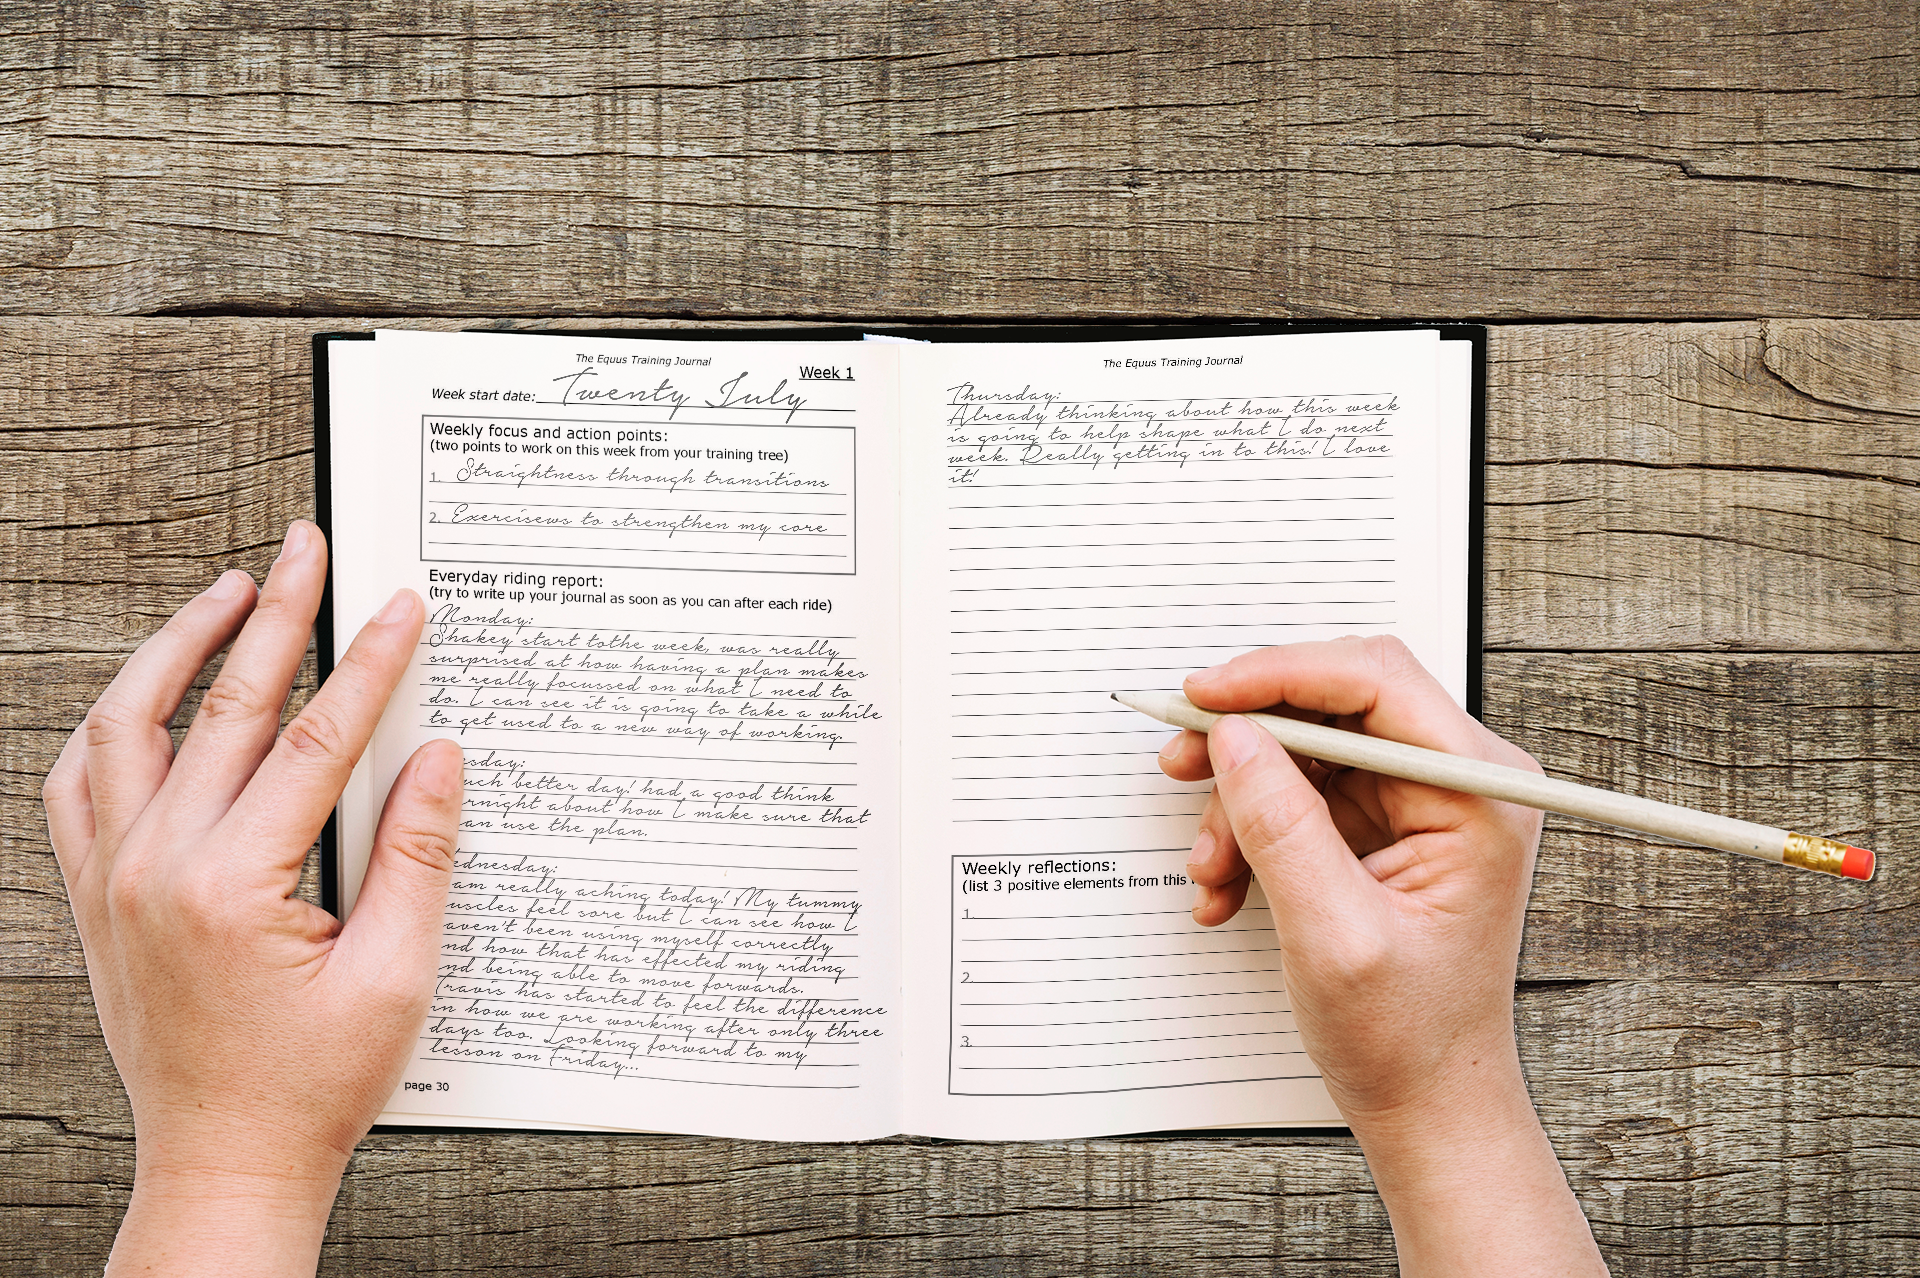 The Equus Training Journal
Week 1
Week start date: Twenty July
Weekly focus and action points:
(two points to work on this week from your training tree)
1. Straightness through transitions
2. Exercisews to strengthen my core
Everyday riding report:
(try to write up your journal as soon as you can after each ride)
Monday:
Shakey start tothe week, was really
surprised at how having a plan makes
me really focussed on what I need to
do. I can see it is going to take a while
to get used to a new way of working.
sday:
uch better day! had a good think
rnight about how I make sure that
an use the plan.
dnesday:
am really aching today! My tummy
uscles feel sore but I can see how I
aven't been using myself correctly
nd how that has effected my riding
nd being able to move forwards.
Travis has started to feel the difference
in how we are working after only three
days too. Looking forward to my
lesson on Friday...
page 30
The Equus Training Journal
Thursday:
Already thinking about how this week
is going to help shape what I do next
week. Really getting in to this! I love
it!
Weekly reflections:
(list 3 positive elements from this
1.
2.
3.